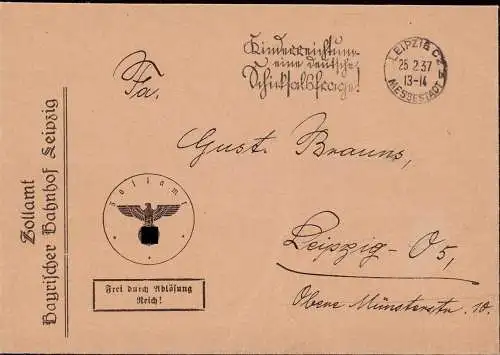 Zollamt
Bayrischer Bahnhof Leipzig
Kinderreichtum
eine deutsche
Schicksalsfrage!
LEIPZIG C2
25.2.37
13-14
MESSESTADT
Fa.
Gust. Brauns,
Zollamt
Frei durch Ablösung
Reich!
Leipzig-O5,
Obere Münsterstr. 10.